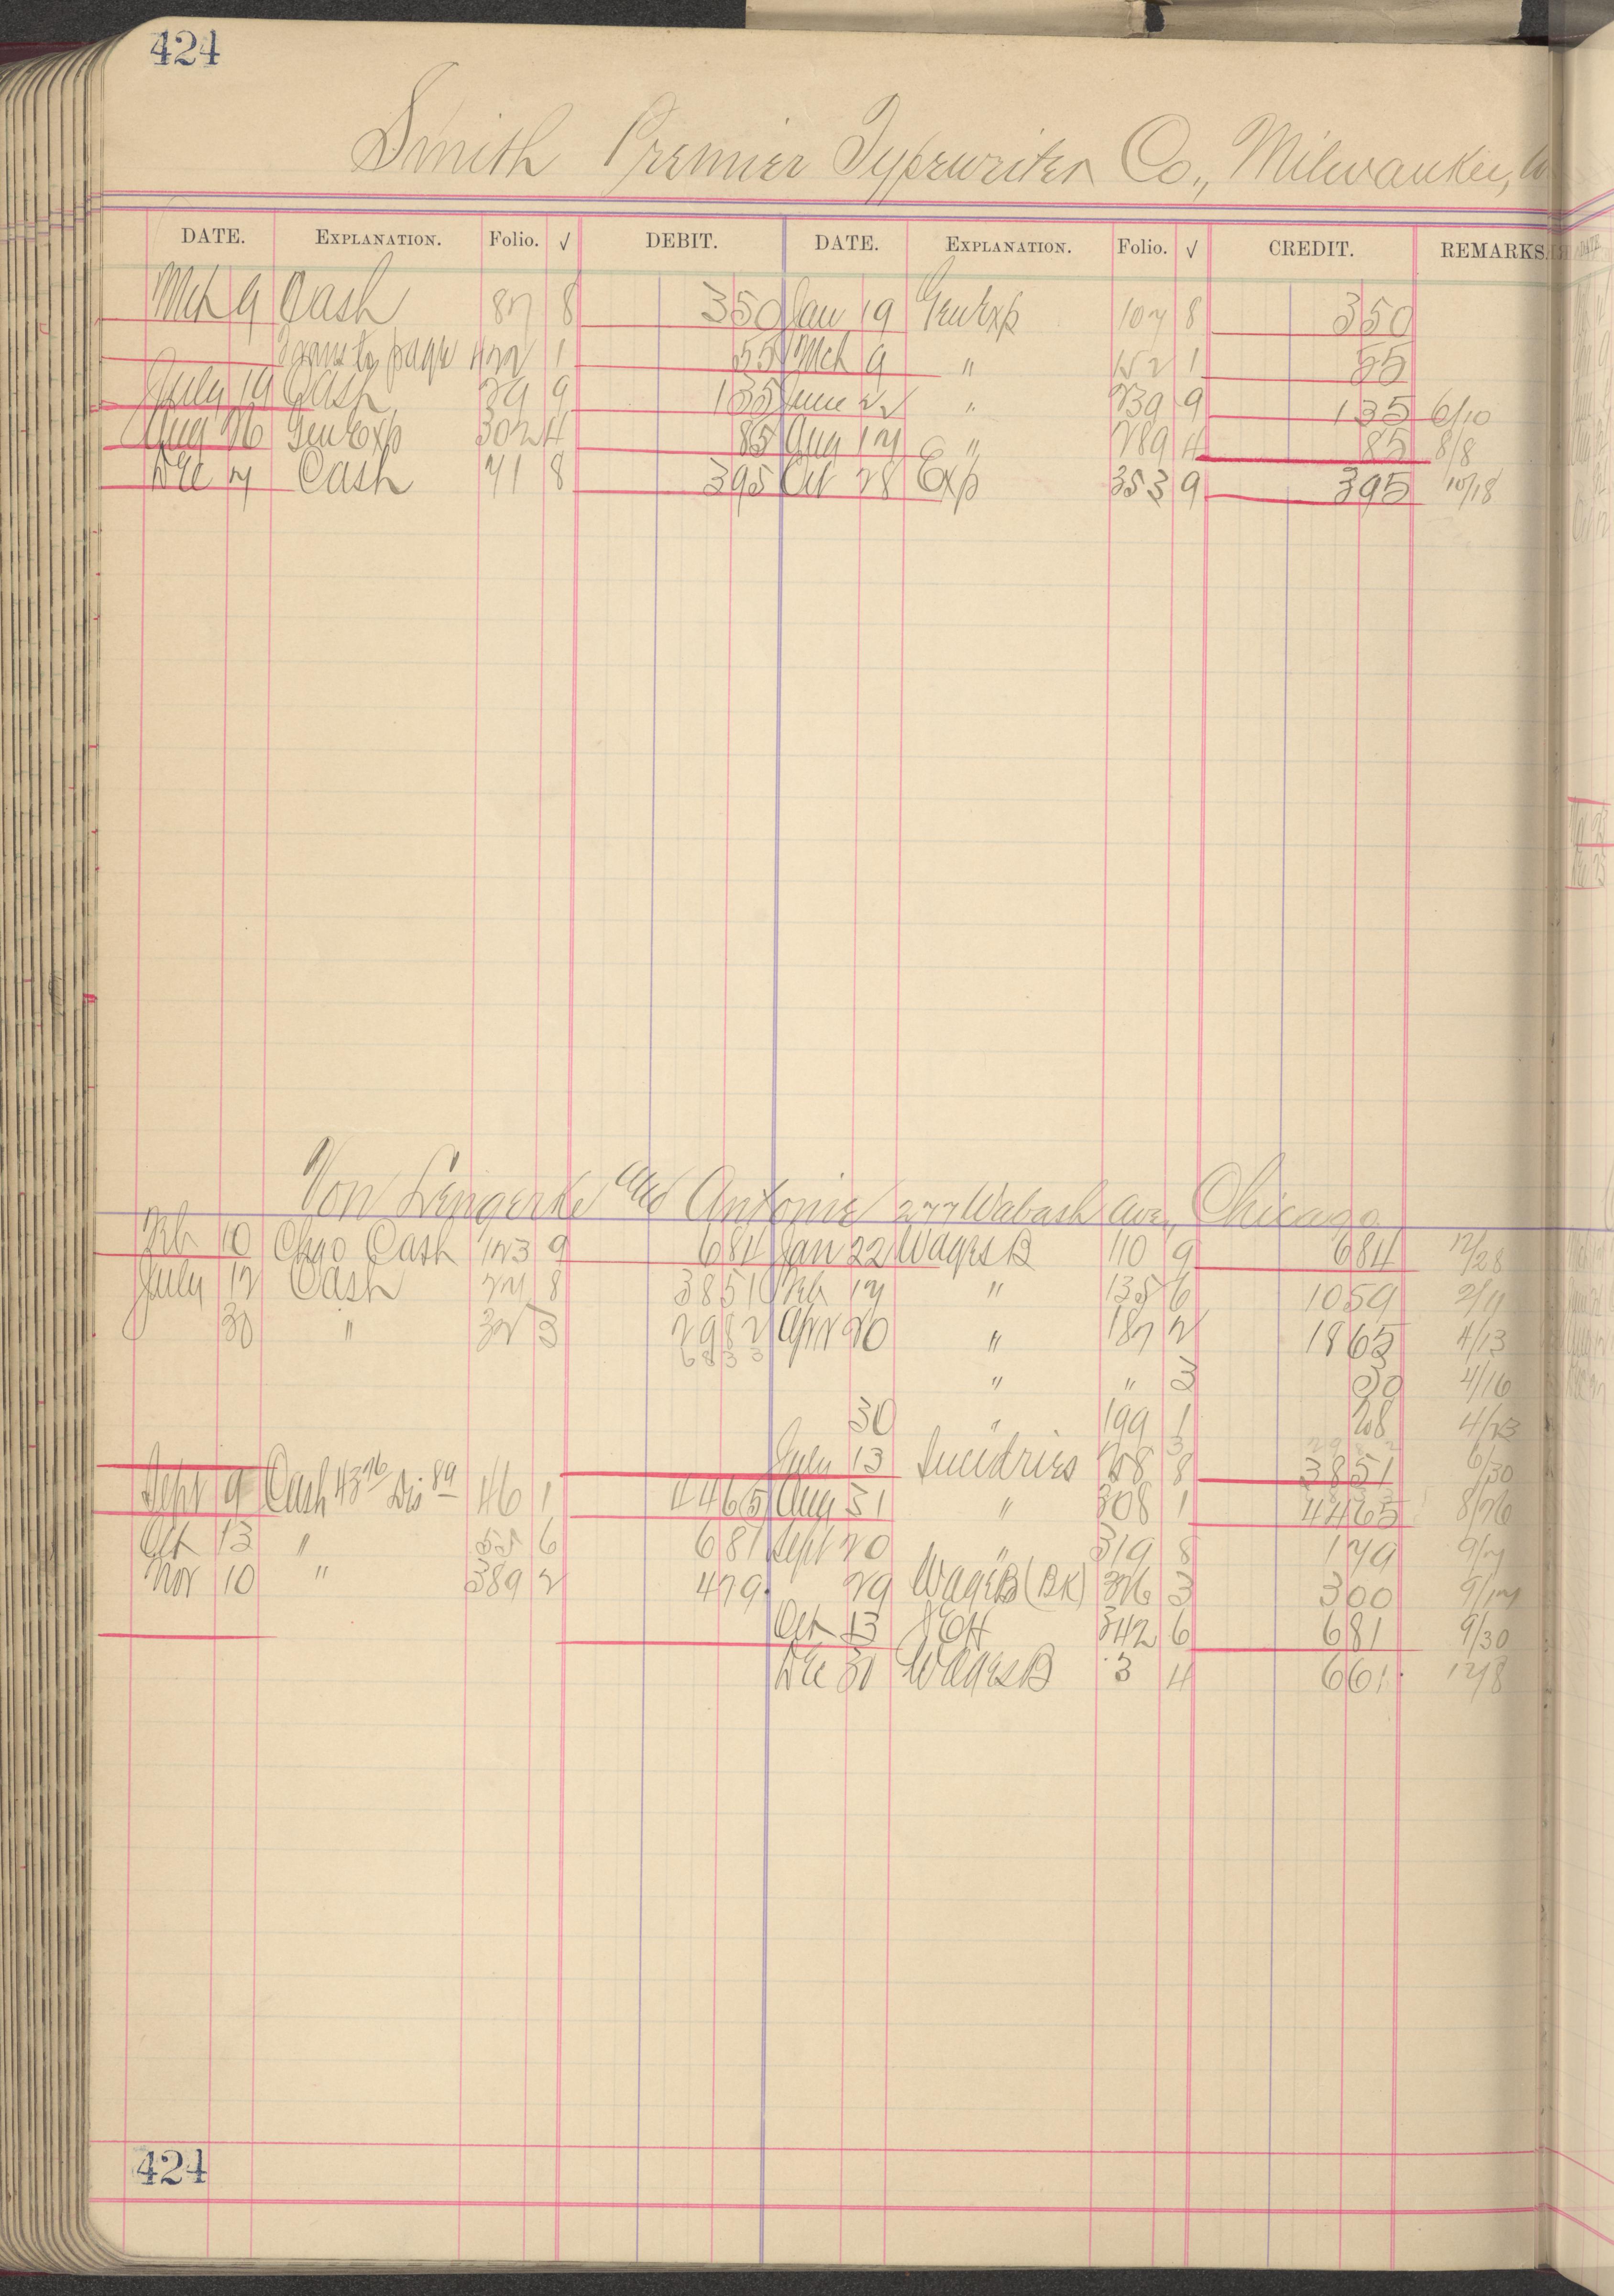 424
Smith Premier Typewriter Co., Milwaukee, W
DATE. EXPLANATION. Folio. √ DEBIT. DATE. EXPLANATION. Folio. √ CREDIT. REMARKS.
Mch 9 Cash 87 8 350 Jan 19 Gen Exp 107 8 350
Trans to page 422 1 55 Mch 9 " 152 1 55
July 19 Cash 29 9 135 June 22 " 239 9 135 6/10
Aug 26 Gen Exp 302 4 85 Aug 17 " 289 4 85 8/8
Dec 7 Cash 71 8 395 Oct 28 Exp 353 9 395 10/18
Von Lengerke and Antonie 277 Wabash Ave., Chicago
Feb 10 Chgo Cash 123 9 684 Jan 22 Wages B 110 9 684 12/28
July 12 Cash 24 8 3851 Feb 17 " 135 6 1059 2/9
30 " 32 3 2982 Apr 20 " 187 2 1865 4/13
6833
" " 3 30 4/16
30 " 199 1 28 4/23
July 13 Sundries 258 8 3851 6/30
Sept 9 Cash 43 76 Dis 89 46 1 4465 Aug 31 " 308 1 4465 8/26
Oct 13 " 55 6 681 Sept 20 " 319 8 179 9/7
Nov 10 " 389 2 479 29 Wages B (BK) 326 3 300 9/17
Oct 13 342 6 681 9/30
Dec 31 Wages B 3 4 661 12/8
424